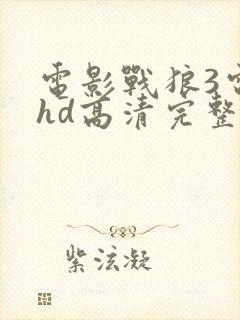 電影戰狼3電
hd高清完整
紫泫凝